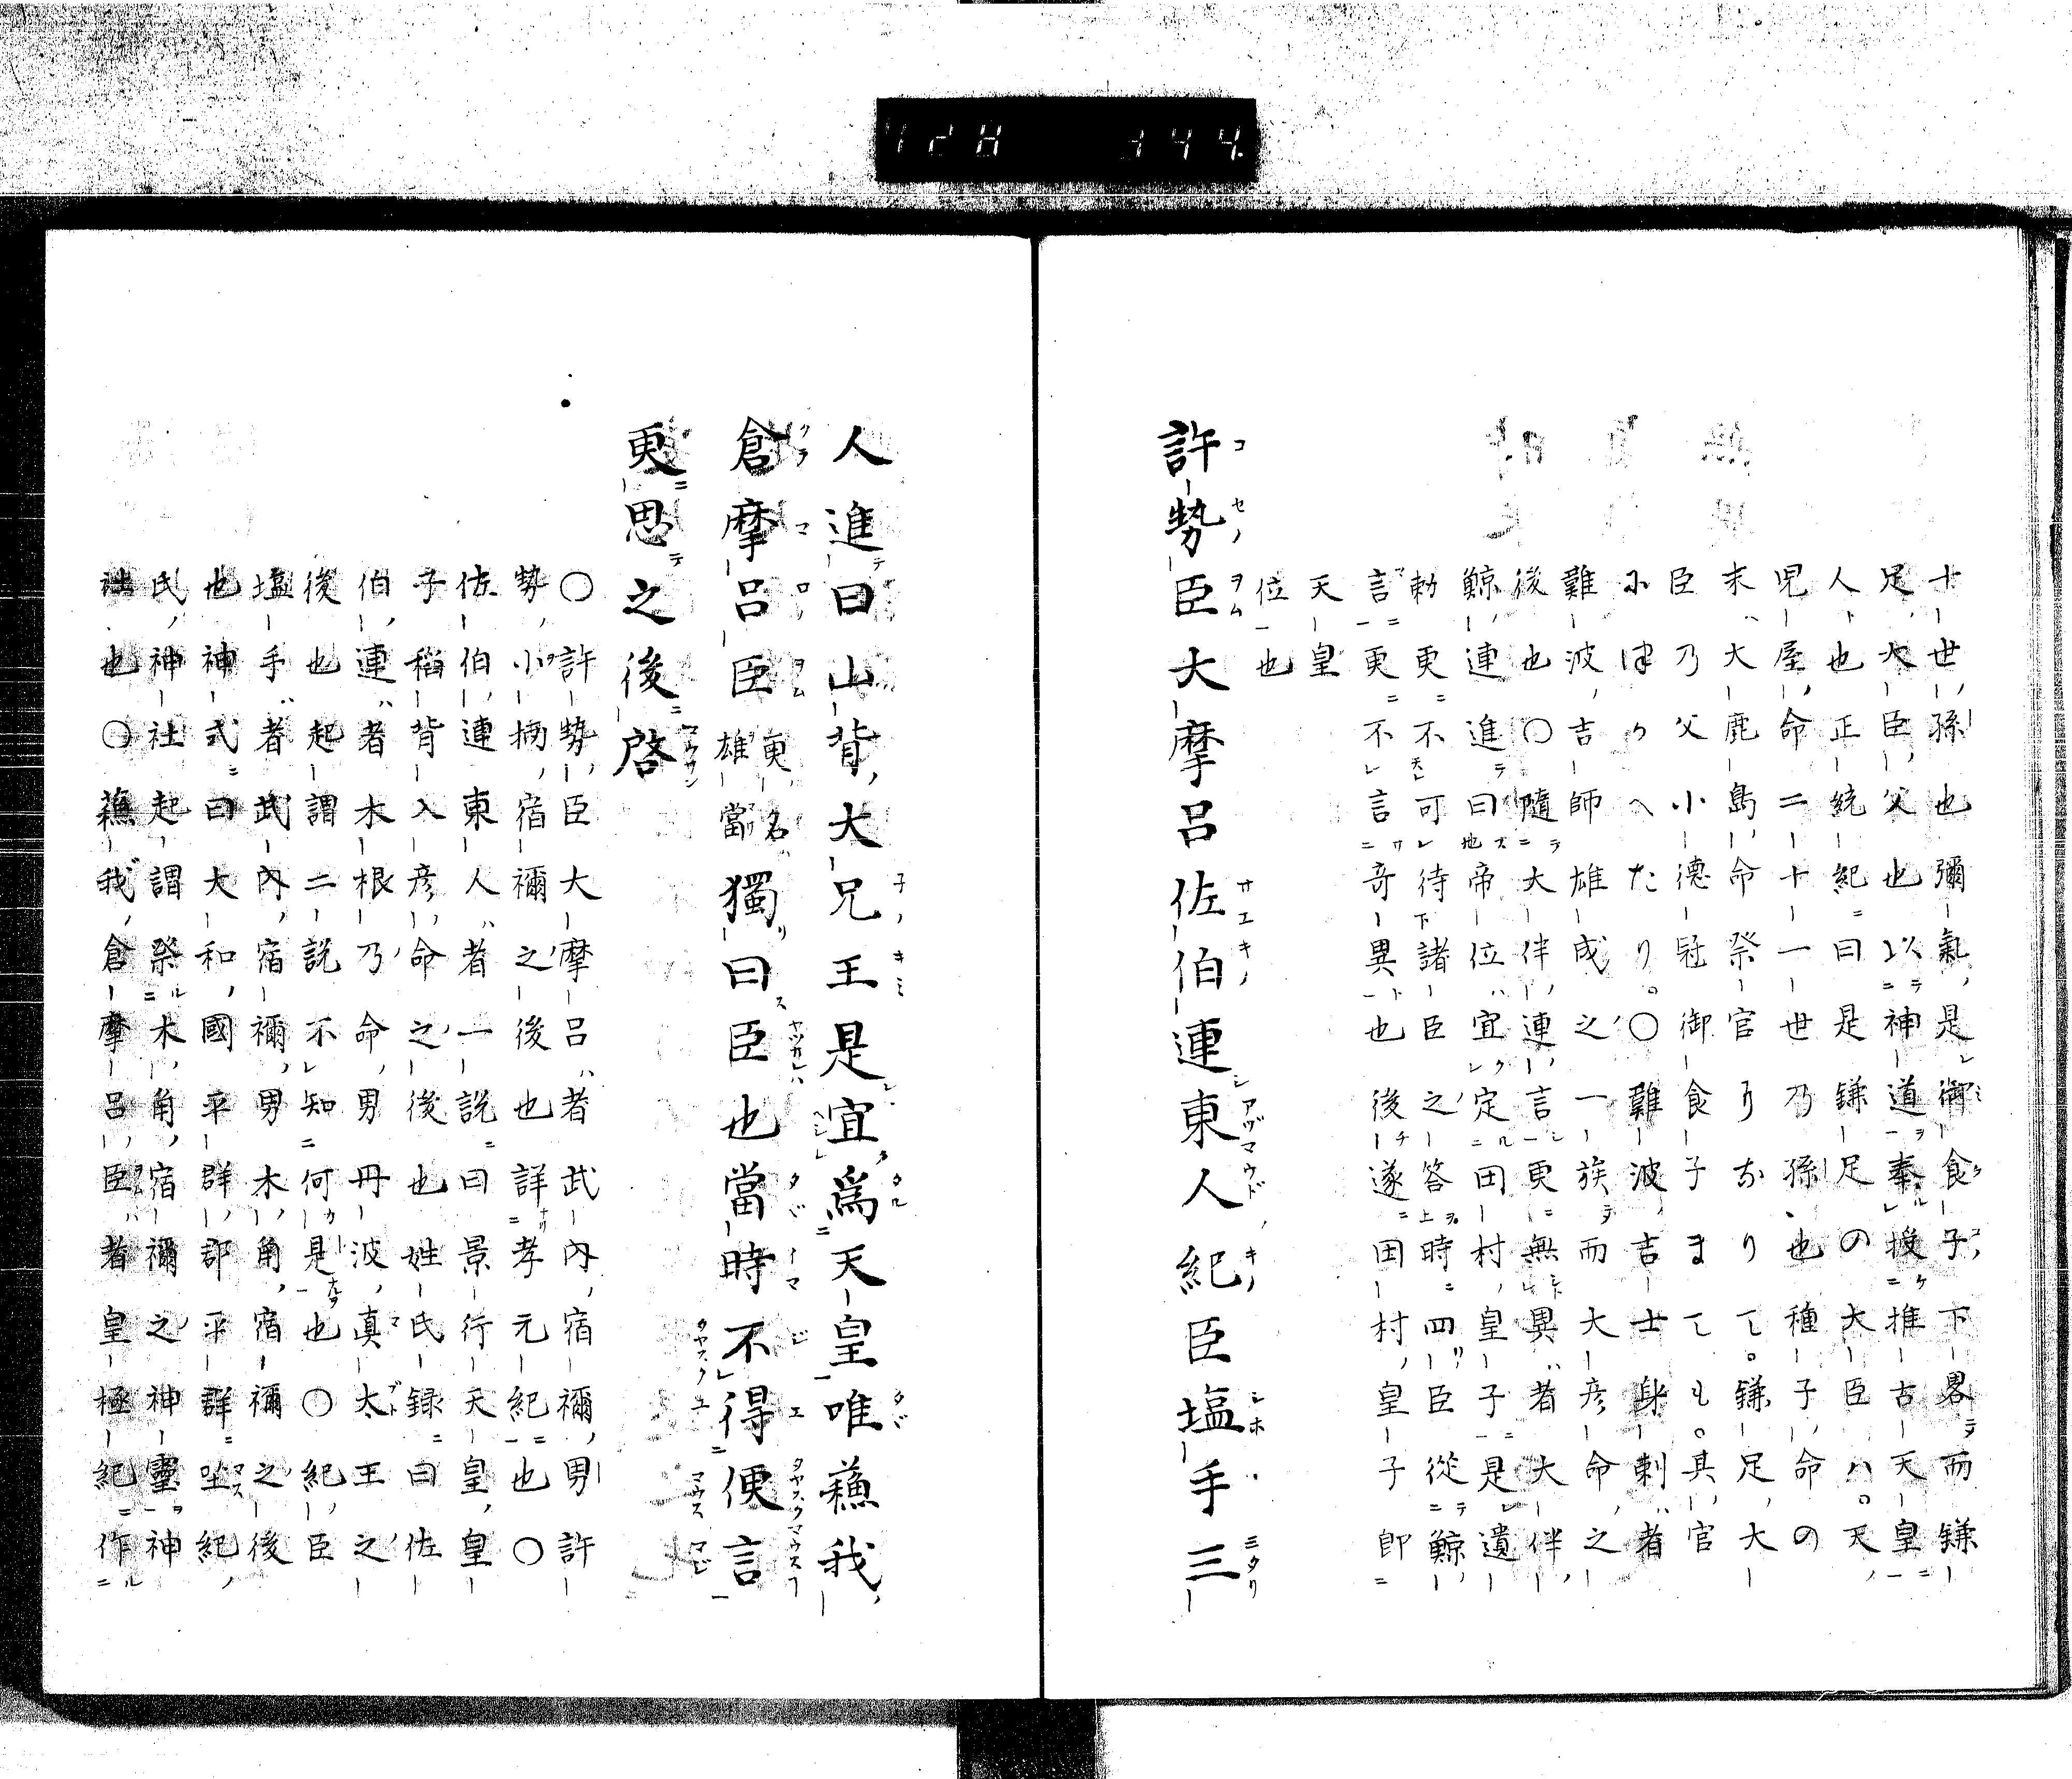 十世孫也彌氣是御食子下畧而鎌
足大臣父也以神道奉授推古天皇
人也正統紀曰是鎌足の大臣ハ。天
児屋命二十一世乃孫也種子命の
末大鹿島命祭官
臣乃父小德冠御食子まても。其官
難波吉師雄成之一族而大彦命之
後也〇隨大伴連言更無異者大伴
鯨連進曰帝位宜定田村皇子是遺
勅更不可待諸臣之答時四臣從鯨
言更不言奇異也後遂田村皇子即
天皇
位也
許勢臣大摩呂佐伯連東人紀臣塩手三
人進曰山背大兄王是宜為天皇唯蘓我
倉摩呂臣更名雄當獨曰臣也當時不得便言
更思之後啓
〇許勢臣大摩呂者武內宿禰男許
勢小柄宿禰之後也詳孝元紀也〇
佐伯連東人者一説曰景行天皇皇
子稻背入彦命之後也姓氏録曰佐
伯連者木根乃命男丹波真太王之
後也起謂二説不知何是也〇紀臣
塩手者武內宿禰男木角宿禰之後
也神式曰大和國平群郡平群坐紀
氏神社起謂祭木角宿禰之神靈神
社也〇蘓我倉摩呂臣者皇極紀作
728 344